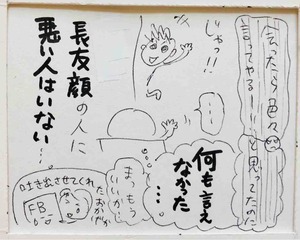 会ったら色々
言ってやるーー!!と思ってたのに
じゃっ!!
…
何も言え
なかった
…
まっもう
いいか…
長友顔の人に
悪い人はいない…
吐き出させてくれ
たおかげか
FB